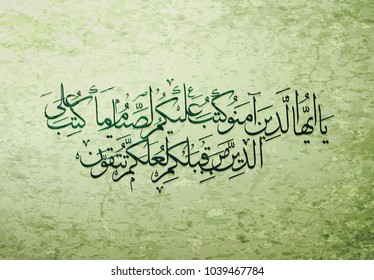 يَا أَيُّهَا الَّذِينَ آمَنُوا كُتِبَ عَلَيْكُمُ الصِّيَامُ كَمَا كُتِبَ عَلَى
الَّذِينَ مِن قَبْلِكُمْ لَعَلَّكُمْ تَتَّقُونَ
www.shutterstock.com · 1039467784